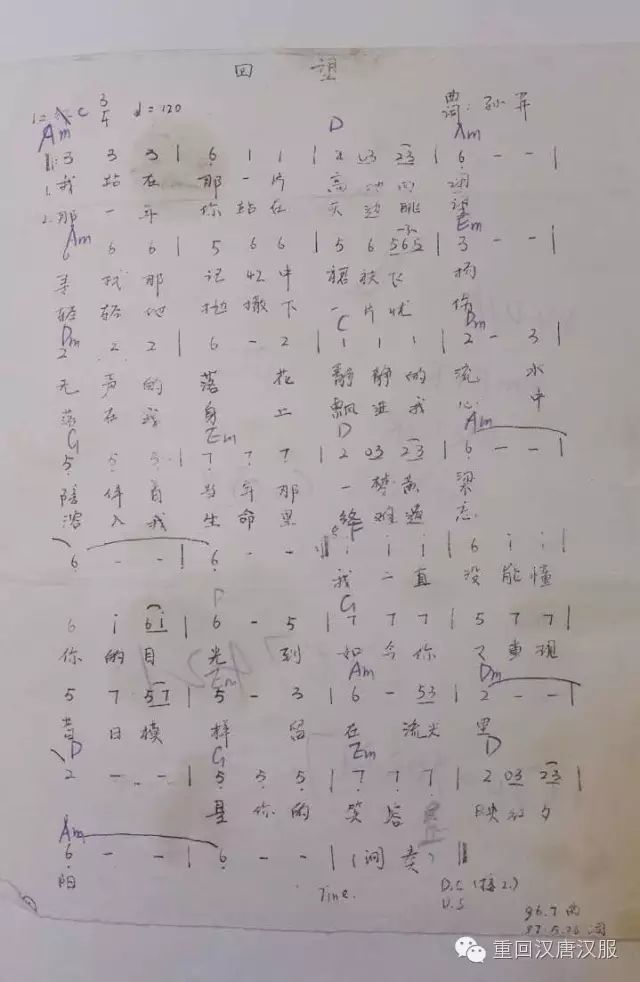 回 望
1=C 3/4 ♩=120
曲词:孙异
Am D Am
‖: 3 3 3 | 6 1 1 | 2 03 23 | 6 - - |
1.我 站 在 那 一 片 高 地 回 望
2.那 一 年 你 站 在 天 边 眺 望
Am Em
6 6 6 | 5 6 6 | 5 6 565 | 3 - - |
寻 找 那 记 忆 中 裙 袂 飞 扬
轻 轻 地 抛 撒 下 一 片 忧 伤
Dm C Dm
2 2 2 | 6 - 2 | 1 1 1 | 2 - 3 |
无 声 的 落 花 静 静 的 流 水
落 在 我 身 上 飘 进 我 心 中
G Em D Am
5 5 5 | 7 7 7 | 2 03 23 | 6 - - |
陪 伴 着 当 年 那 一 梦 黄 粱
溶 入 我 生 命 里 终 难 遗 忘
6 - - | 6 - - ‖ i i i | 6 i i |
我 一 直 没 能 懂
F G
6 i 6i | 6 - 5 | 7 7 7 | 5 7 7 |
你 的 目 光 到 如 今 你 又 重 现
Em Am Dm
5 7 57 | 5 - 3 | 6 - 53 | 2 - - |
昔 日 模 样 留 在 流 光 里
D G Em D
2 - - | 5 5 5 | 7 7 7 | 2 03 23 |
是 你 的 笑 容 映 红 夕
Am
6 - - | 6 - - | (间 奏) ‖
阳
Fine. D.C (接2.)
D.S
96.7 曲
97.5.26 词
重回汉唐汉服